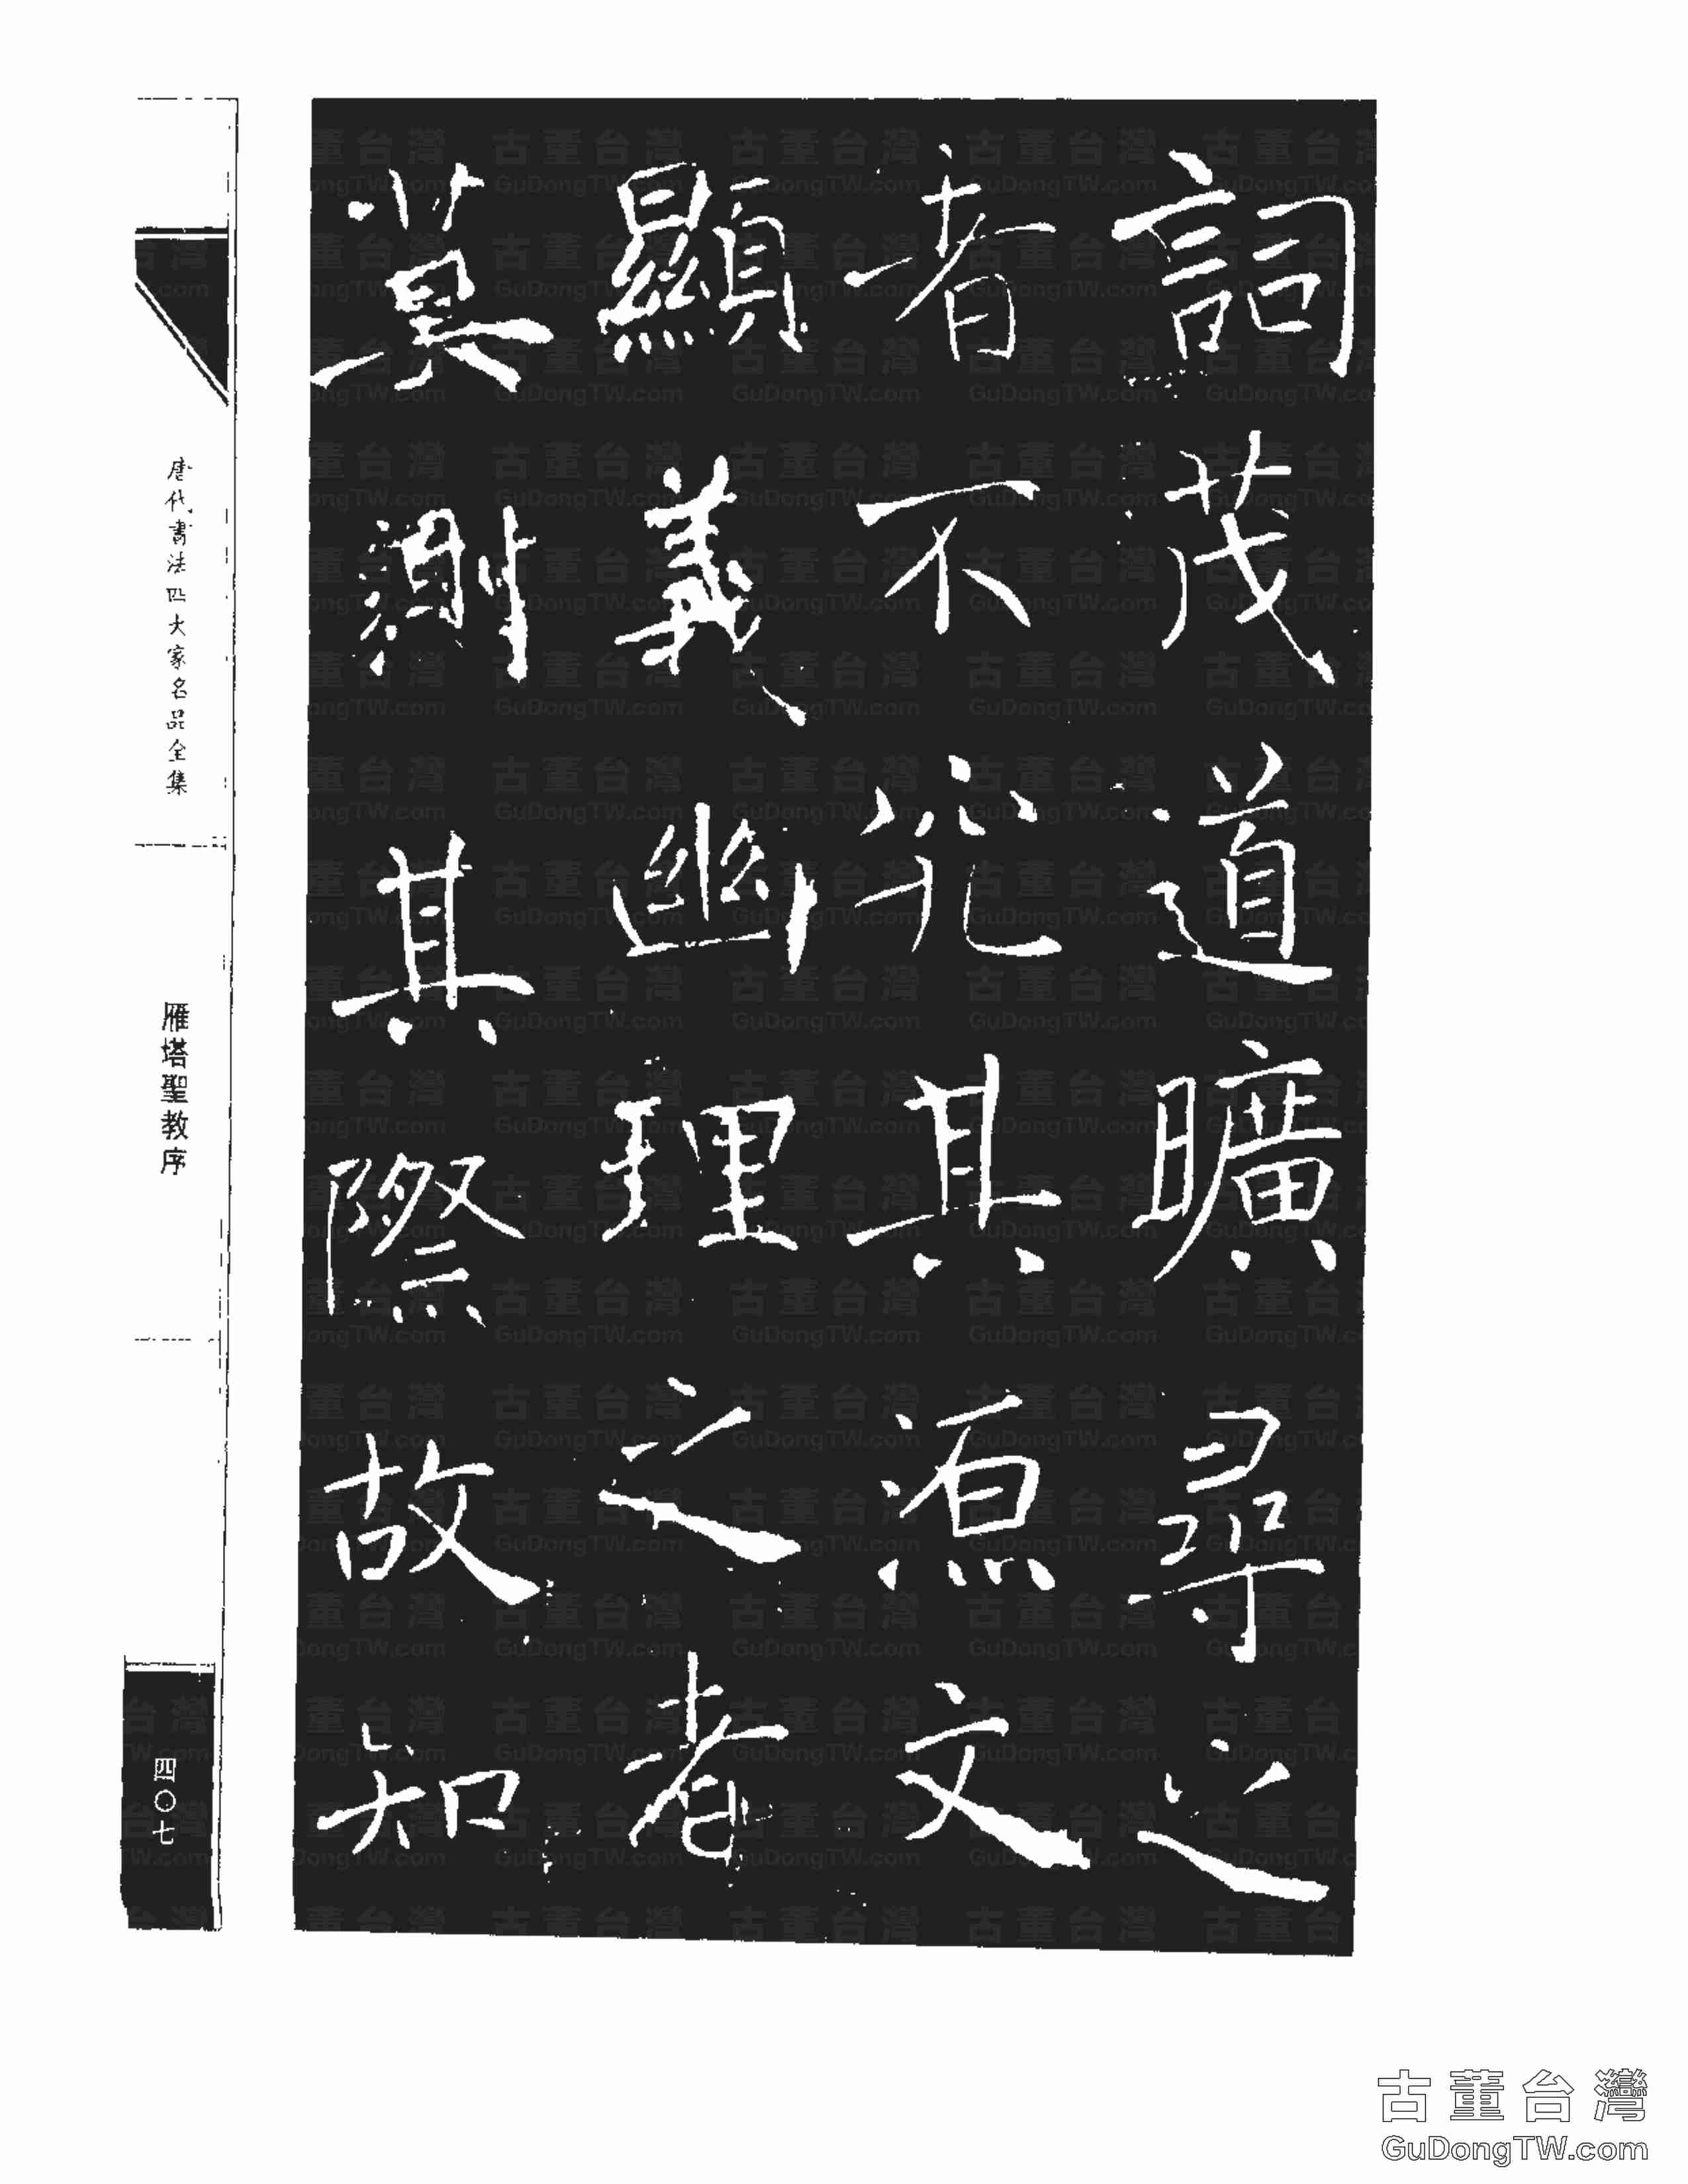 詞茂道曠尋之
者不究其源文
顯義幽理之者
莫測其際故知
唐代書法四大家名品全集
雁塔聖教序
四〇七
古董台灣
GuDongTW.com